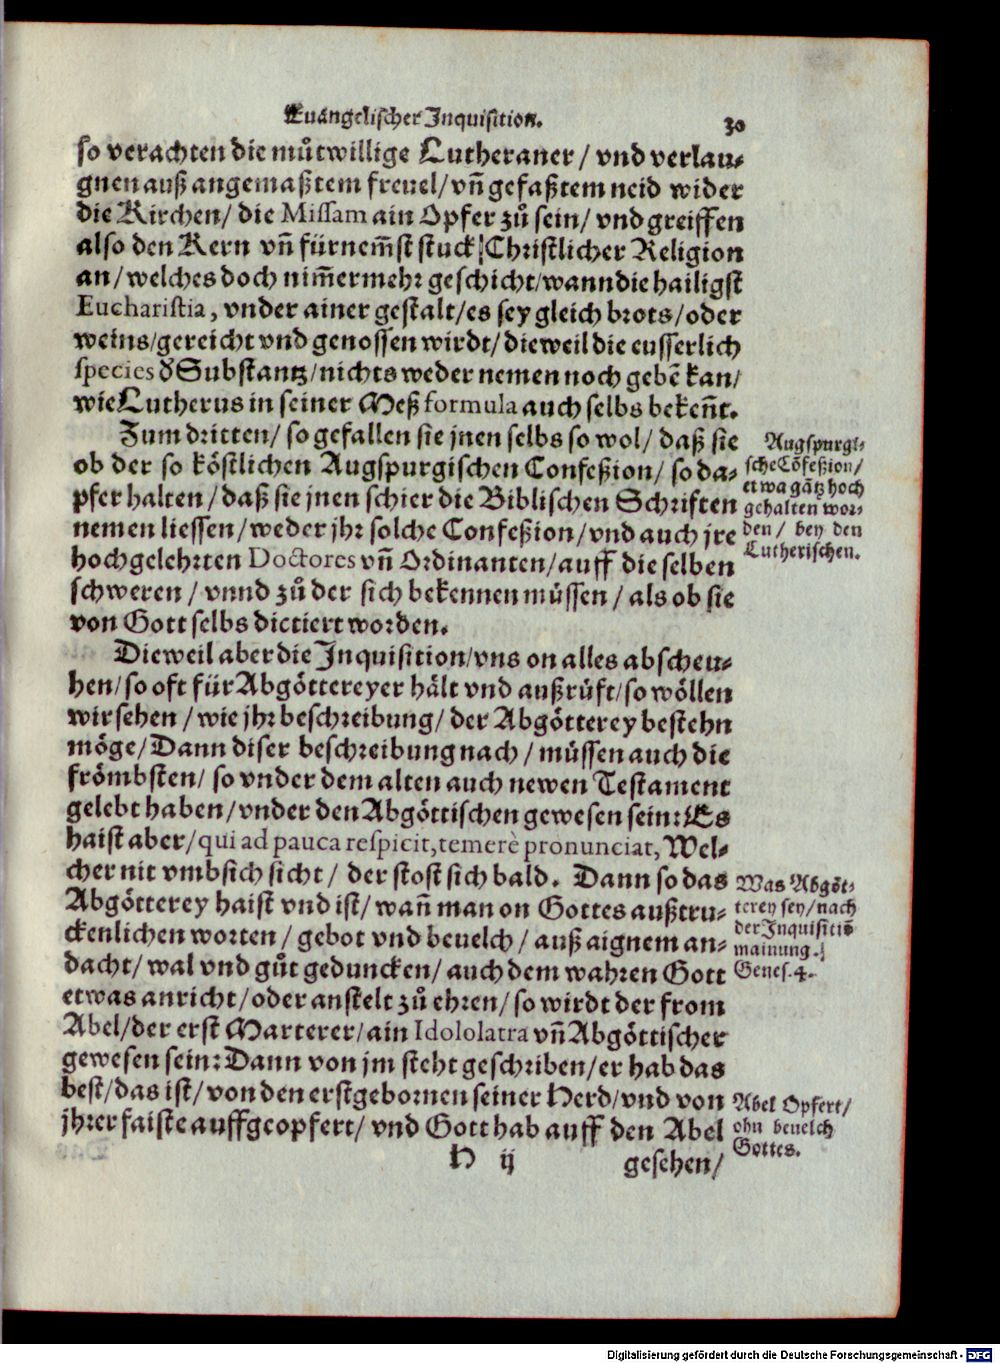 Euangelischer Inquisition. 30
so verachten die můtwillige Lutheraner / vnd verlau⸗
gnen auß angemaßtem freuel / vñ gefaßtem neid wider
die Kirchen / die Missam ain Opfer zů sein / vnd greiffen
also den Kern vñ fürnem̃st stuck / Christlicher Religion
an / welches doch nim̃ermehr geschicht / wann die hailigst
Eucharistia, vnder ainer gestalt / es sey gleich brots / oder
weins / gereicht vnd genossen wirdt / dieweil die eusserlich
species d̕ Substantz / nichts weder nemen noch gebẽ kan /
wie Lutherus in seiner Meß formula auch selbs bekeñt.
Zum dritten / so gefallen sie jnen selbs so wol / daß sie
ob der so köstlichen Augspurgischen Confeßion / so da⸗
pfer halten / daß sie jnen schier die Biblischen Schriften
nemen liessen / weder jhr solche Confeßion / vnd auch jre
hochgelehrten Doctores vñ Ordinanten / auff die selben
schweren / vnnd zů der sich bekennen müssen / als ob sie
von Gott selbs dictiert worden.
Augspurgi⸗
sche Cõfeßion /
etwa gãtz hoch
gehalten wor⸗
den / bey den
Lutherischen.
Dieweil aber die Inquisition / vns on alles abscheu⸗
hen / so oft für Abgöttereyer hält vnd außrüft / so wöllen
wir sehen / wie jhr beschreibung / der Abgötterey bestehn
möge / Dann diser beschreibung nach / müssen auch die
frömbsten / so vnder dem alten auch newen Testament
gelebt haben / vnder den Abgöttischen gewesen sein: Es
haist aber / qui ad pauca respicit, temerè pronunciat, Wel⸗
cher nit vmbsich sicht / der stost sich bald. Dann so das
Abgötterey haist vnd ist / wañ man on Gottes außtru⸗
ckenlichen worten / gebot vnd beuelch / auß aignem an⸗
dacht / wal vnd gůt geduncken / auch dem wahren Gott
etwas anricht / oder anstelt zů ehren / so wirdt der from
Abel / der erst Marterer / ain Idololatra vñ Abgöttischer
gewesen sein: Dann von jm steht geschriben / er hab das
best / das ist / von den erstgebornen seiner Herd / vnd von
jhrer faiste auffgeopfert / vnd Gott hab auff den Abel
Was Abgöt⸗
terey sey / nach
der Inquisitiõ
mainung.
Genes. 4.
Abel Opfert /
ohn beuelch
Gottes.
H ij gesehen /
Digitalisierung gefördert durch die Deutsche Forschungsgemeinschaft - DFG